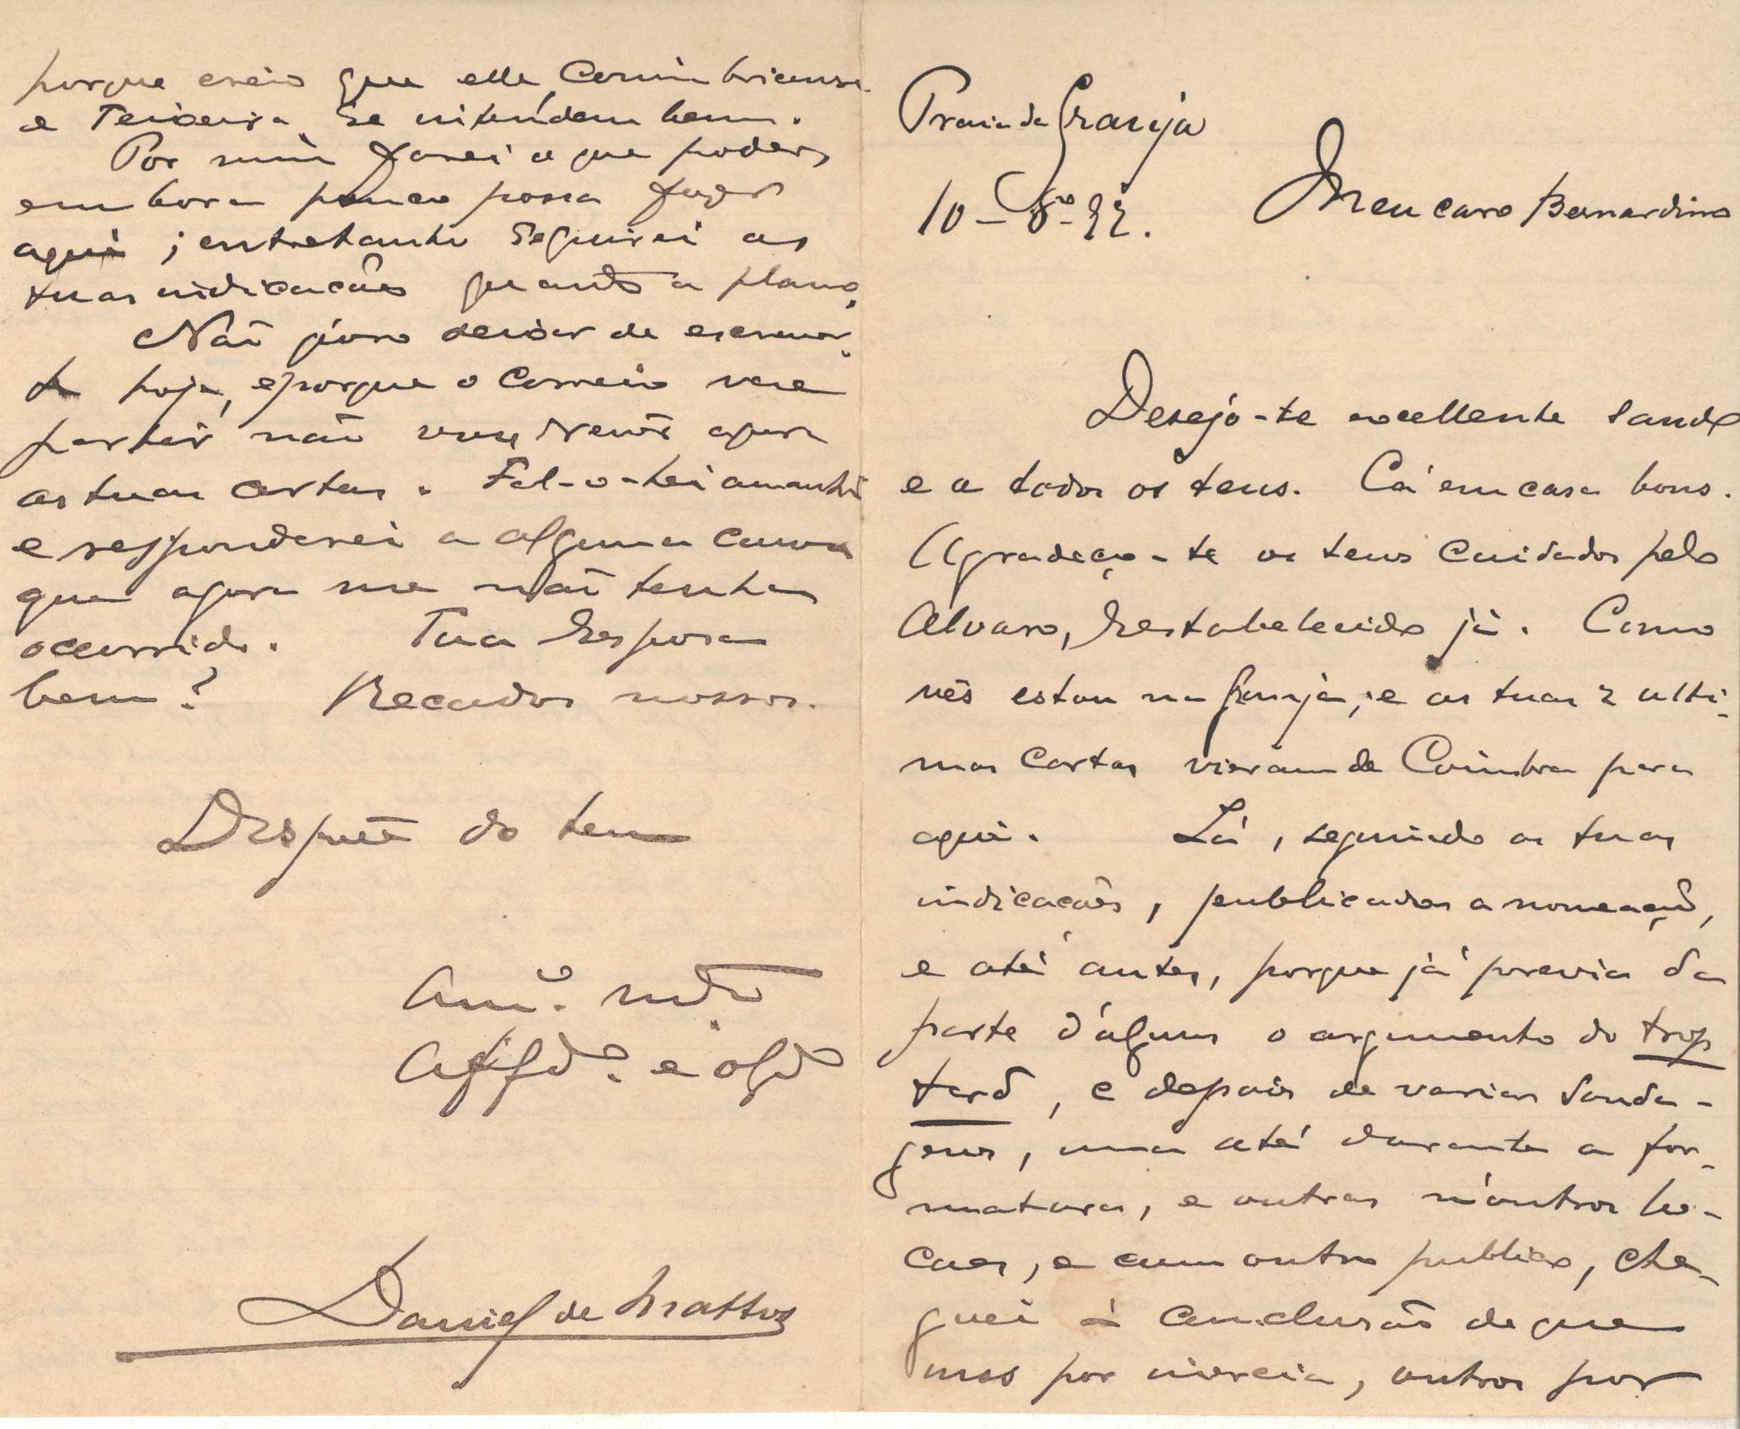 Praia da Granja
10-8º-92.
Meu caro Bernardino
Desejo-te excellente saude
e a todos os teus. Cá em casa bons.
Agradeço-te os teus cuidados pelo
Alvaro, restabelecido já. Como
vês estou na Granja; e as tuas 2 ulti-
mas cartas vieram de Coimbra para
aqui. Lá, seguindo as tuas
indicacões, publicada a nomeação,
e até antes, porque já previa da
parte d'alguns o argumento do trop
tard, e depois de varias sonda-
gens, uma até durante a for-
matura, e outras n'outros lo-
caes, e com outro publico, che-
guei á conclusão de que
uns por inercia, outros por
porque creio que elle Conimbricense
e Teixeira se intendem bem.
Por mim farei o que poder,
embora pouco possa fazer
aqui; entretanto seguirei as
tuas indicacões quanto a plano.
Não quero deixar de escrever-
te hoje, e porque o correio vae
partir não vou rever agora
as tuas cartas. Fal-o-hei amanhã
e responderei a alguma cousa
que agora me não tenha
occorrido. Tua Esposa
bem? Recados nossos.
Dispõe do teu
Amº. mtº
Affdº. e obgdº
Daniel de Mattos